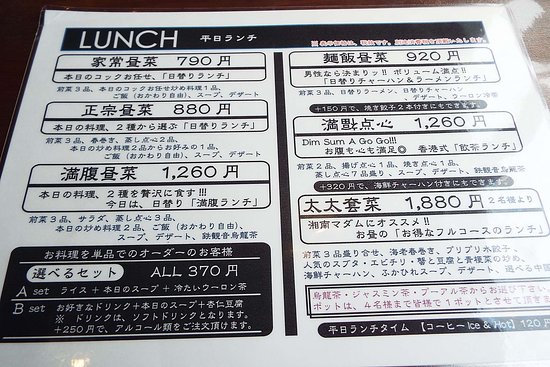 LUNCH 平日ランチ
家常昼菜 790円
本日のコックお任せ、「日替りランチ」
前菜3品、本日のコックお任せ炒め料理1品、
ご飯(おかわり自由)、スープ、デザート
正宗昼菜 880円
本日の料理、2種から選ぶ「日替りランチ」
前菜3品、春巻き、蒸し点心2品、
本日の炒め料理2品からお好みの1品、
ご飯(おかわり自由)、スープ、デザート
満腹昼菜 1,260円
本日の料理、2種を贅沢に食す!!!
今日は、日替り「満腹ランチ」
前菜3品、サラダ、蒸し点心3品、
本日の炒め料理2品、ご飯(おかわり自由)、
スープ、デザート、鉄観音烏龍茶
お料理を単品でのオーダーのお客様
選べるセット ALL 370円
A set ライス+本日のスープ+冷たいウーロン茶
B set お好きなドリンク+本日のスープ+杏仁豆腐
※ドリンクは、ソフトドリンクとなります。
+250円で、アルコール類をご注文頂けます。
麺飯昼菜 920円
男性なら決まりッ!! ボリューム満点!!
「日替りチャーハン&ラーメンランチ」
前菜3品、日替りラーメン、日替りチャーハン
デザート、ウーロン冷茶
+150円で、焼き餃子2本付きにもできます。
満點点心 1,260円
Dim Sum A Go Go!!!
お腹も心も満足◎ 香港式「飲茶ランチ」
前菜2品、揚げ点心1品、焼き点心1品、
蒸し点心5品、スープ、デザート、鉄観音烏龍茶
+320円で、海鮮チャーハン付きにもできます。
太太套菜 1,880円 2名様より
湘南マダムにオススメ!!
お昼の「お得なフルコースのランチ」
前菜3品盛り合せ、海老春巻き、プリプリ水餃子、
人気のスブタ・エビチリ・蟹と豆腐と青梗菜の炒め、
海鮮チャーハン、ふかひれスープ、デザート、選べる中国
烏龍茶・ジャスミン茶・プーアル茶からお選び下さい
ポットは、4名様まで皆様で1ポットとさせて頂きま
平日ランチタイム 【コーヒー Ice & Hot】 120円